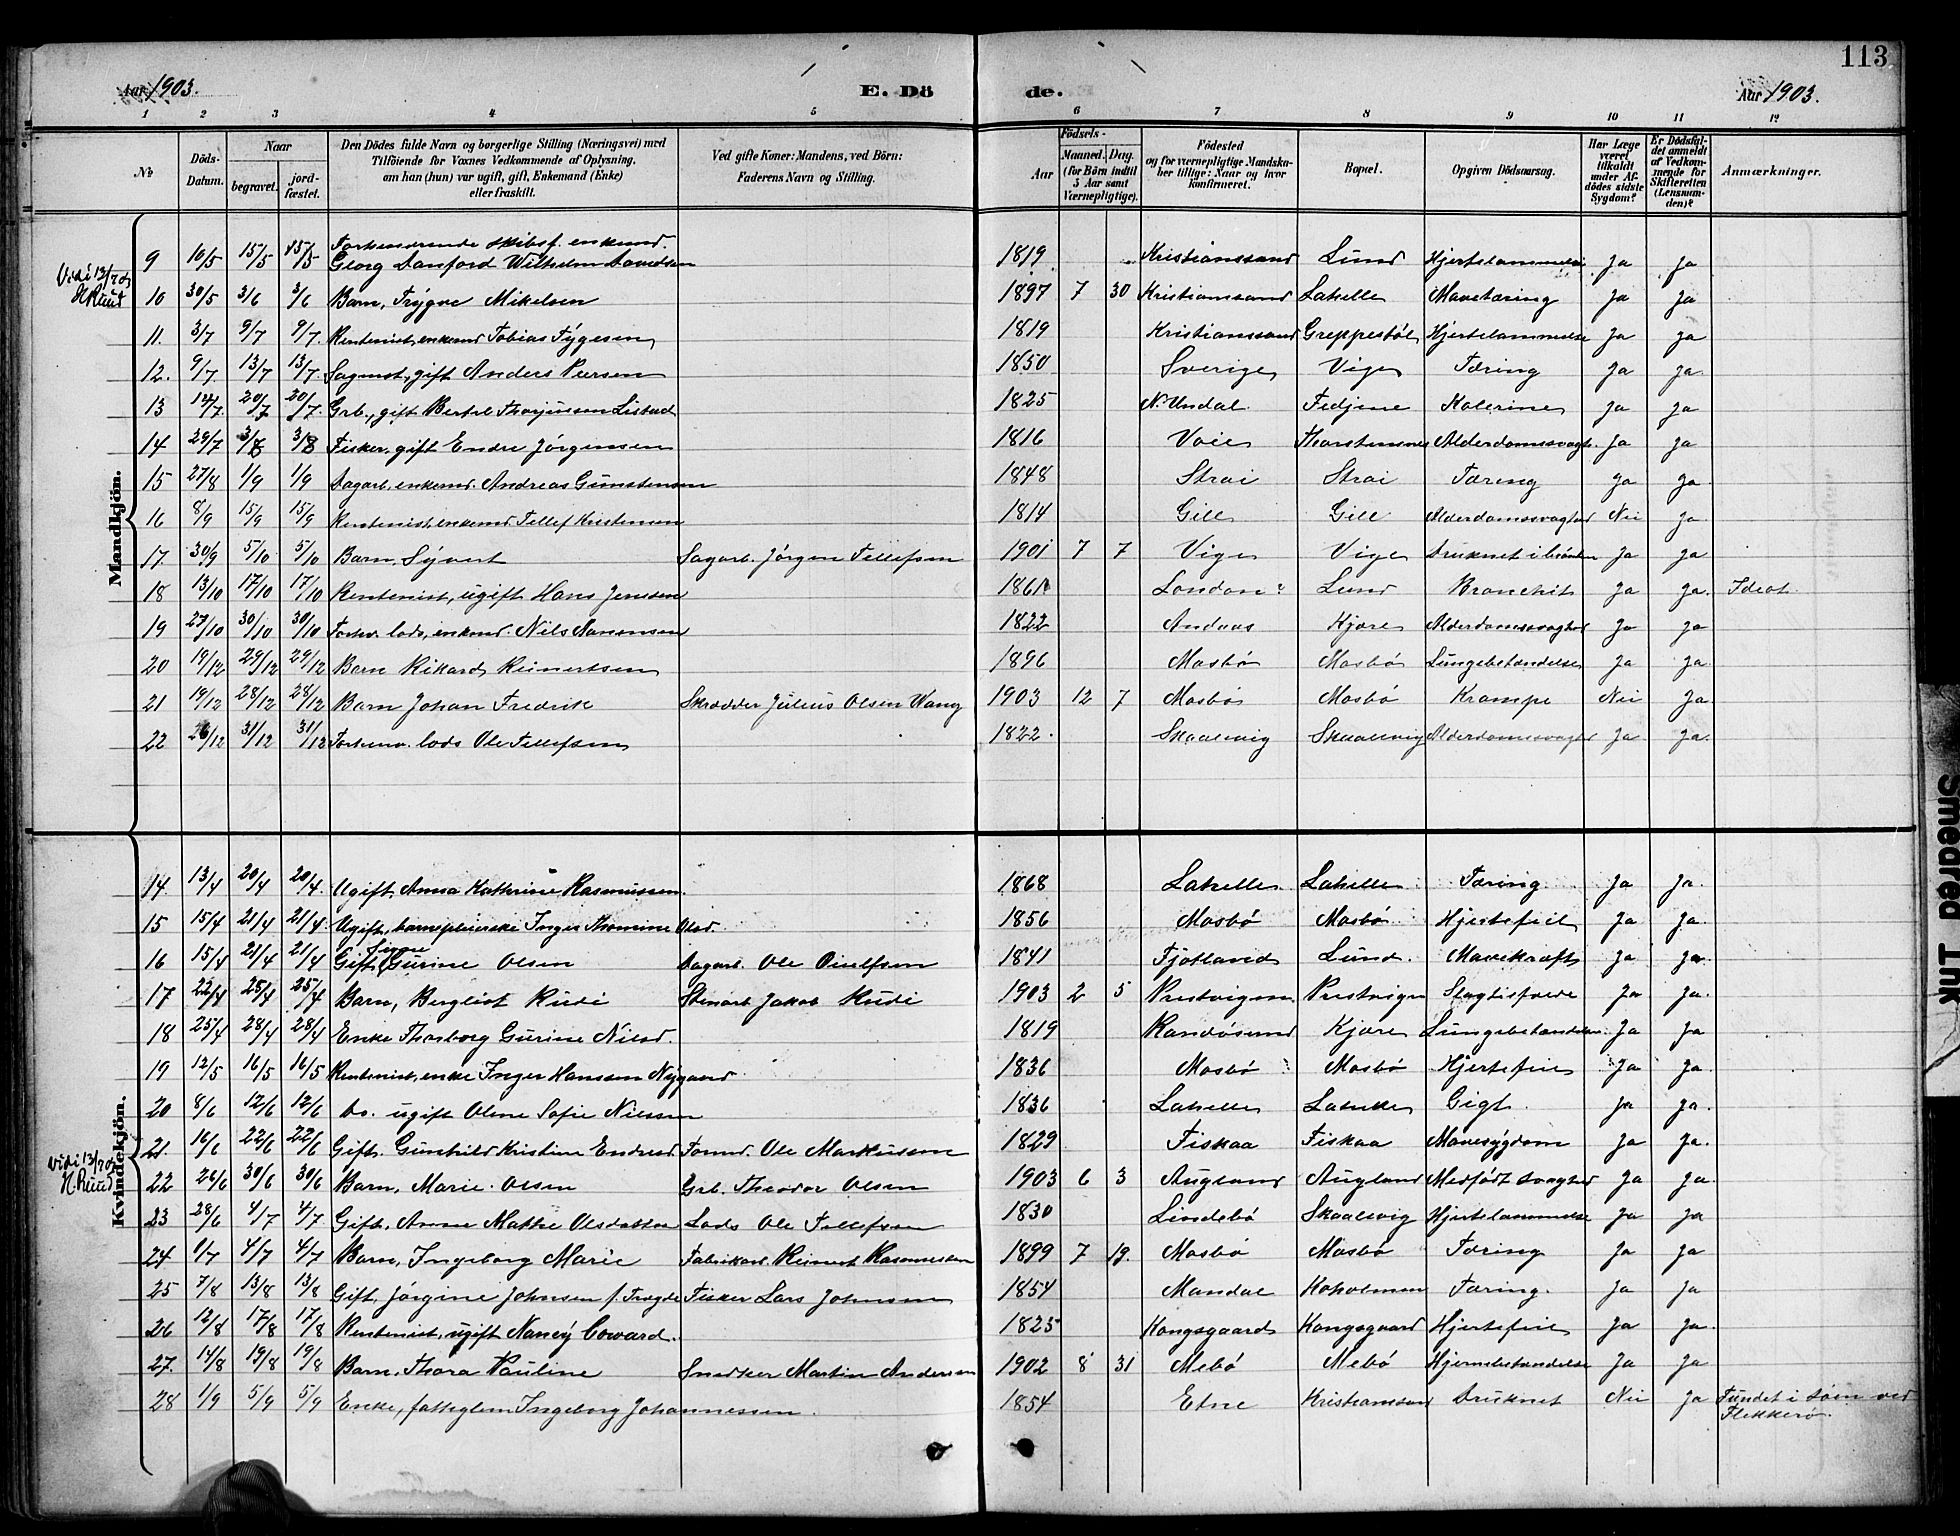 113
Aar 1903. E. Dö de. Aar 1903.
1 2 3 4 5 6 7 8 9 10 11 12
№ Döds-Datum. Naar begravet. jord-fæstet. Den Dödes fulde Navn og borgerlige Stilling (Næringsvei) med Tilföiende for Voxnes Vedkommende af Oplysning, om han (hun) var ugift, gift, Enkemand (Enke) eller fraskilt. Ved gifte Koner: Mandens, ved Börn: Faderens Navn og Stilling. Födsels- Aar Maaned. Dag. (for Börn indtil 5 Aar samt Værnepligtige). Födested og for værnepligtige Mandskaber tillige: Naar og hvor konfirmeret. Bopæl. Opgiven Dödsaarsag. Har Læge været tilkaldt under Afdödes sidste Sygdom? Er Dödsfaldet anmeldt af Vedkommende for Skifteretten (Lensmanden)? Anmærkninger.
Mandkjön.
Vidi 13/7 03
H Ruud
9 10/5 15/5 15/5 Forhenværende skibsf. enkemd. Georg Danford Wilhelm Davidsen 1819 Kristianssand Lund Hjertelammelse Ja Ja
10 30/5 3/6 3/6 Barn, Trygve Mikelsen 1897 7 30 Kristianssand Lahelle Mavetæring Ja Ja
11. 3/7 9/7 9/7. Rentenist, enkemd Tobias Tygesen 1819 Kristianssand Greppestøl Hjertelammelse Ja Ja
12. 9/7. 13/7 13/7. Sagmst., gift Anders Persen 1850 Sverige Vige Tæring Ja Ja
13 14/7. 20/7 20/7. Grb., gift Bertel Thorjussen Listad 1825 N. Undal Fedjene Kolerine Ja Ja
14 29/7 3/8 3/8 Fisker, gift Endre Jörgensen 1816 Voie Thorstensnes Alderdomssvagh. Ja Ja
15 27/8 1/9 1/9 Dagarb., enkemd. Andreas Gunstensen 1848 Strai Strai Tæring Ja Ja
16 8/9 15/9 15/9 Rentenist, enkemd Tellef Kristensen 1814 Gill Gill Alderdomssvaghed Nei Ja
17. 30/9 5/10 5/10 Barn, Syvert Sagarb. Jörgen Tellefsen 1901 7 7 Vige Vige Druknet i brönden Ja Ja
18 13/10 17/10 17/10 Rentenist, ugift Hans Jenssen 1861? London? Lund Bronchit Ja Ja. Idiot.
19 27/10 30/10 30/10 Forhv. lods, enkemd. Nils Aanonsen 1822 Andaas Kjære Alderdomssvaghed Ja Ja
20 19/12 29/12 29/12 Barn Rikard Reinertsen 1896 Mosbö Mosbö Lungebetændelse Ja Ja
21 19/12 28/12 28/12 Barn Johan Fredrik Skrædder Julius Olsen Wang 1903 12 7 Mosbö Mosbö Krampe Nei Ja
22 26/12 31/12 31/12 Forhenv. lods Ole Tellefsen 1822. Skaalevig Skaalevig Alderdomssvaghed Ja Ja
Kvindekjön.
Vidi 13/7 03
H. Ruud
14. 13/4 20/4 20/4. Ugift, Anna Kathrine Rasmussen. 1868 Lahelle Lahelle Tæring. Ja Ja.
15 15/4 21/4 21/4 Ugift, barnepleierske Inger Thomine Olsd. 1856 Mosbö Mosbö Hjertefeil Ja Ja
16 15/4 21/4 21/4 Gift, Signe Gurine Olsen Dagarb. Ole Oielfsen 1841 Fjotland Lund. Mavekræft Ja Ja
17 22/4 25/4 25/4 Barn, Bergliot Rudi Stenarb Jakob Rudi 1903 2 5 Prestvigen Prestvigen Ja Ja.
18 25/4 28/4 28/4 Enke Thorborg Gurine Nilsd. 1819 Randösund Kjære Lungebetændelse Ja Ja
19 12/5 16/5 16/5 Rentenist, enke Inger Hanssen Nygaard 1836 Mosbö Mosbö Hjertefeil Ja Ja
20 8/6 12/6 12/6 Do. ugift Oline Sofie Nilssen 1836 Lahelle Lahelle Gigt. Ja Ja.
21. 16/6 22/6 22/6 Gift. Gunhild Kristine Endresd. Formd. Ole Markussen 1829 Fiskaa Fiskaa Mavesygdom Ja Ja.
22 26/6 30/6 30/6 Barn, Marie Olsen Grb. Theodor Olsen 1903 6 3 Augland Augland Medfødt svaghed Ja Ja
23 28/6 4/7 4/7 Gift, Anne Mathe Olsdatter Lods Ole Tellefsen 1830 Lindebö Skaalevig Hjertelammelse Ja Ja
24 1/7 4/7 4/7 Barn, Ingeborg Marie Fabrikarb. Reinert Rasmussen 1899 7 19. Mosbö Mosbö Tæring Ja Ja
25 7/8 13/8 13/8 Gift, Jörgine Johnsen f. Trygde Fisker Lars Johnsen 1854 Mandal Koholmen Tæring. Ja Ja
26 12/8 17/8 17/8 Rentenist, ugift Nancy Coward. 1825 Kongsgaard Kongsgaard Hjertefeil Ja Ja.
27. 14/8 19/8 19/8 Barn, Thora Pauline Snedker Martin Andersen 1902 8 31 Mebö Mebö Hjernebetændelse Ja Ja
28 1/9 5/9 5/9 Enke, fattiglem Ingeborg Johannessen. 1854 Etne Kristianssand Druknet Nei Ja Fundet i söen ved Flekkerö.
Smeared Ink